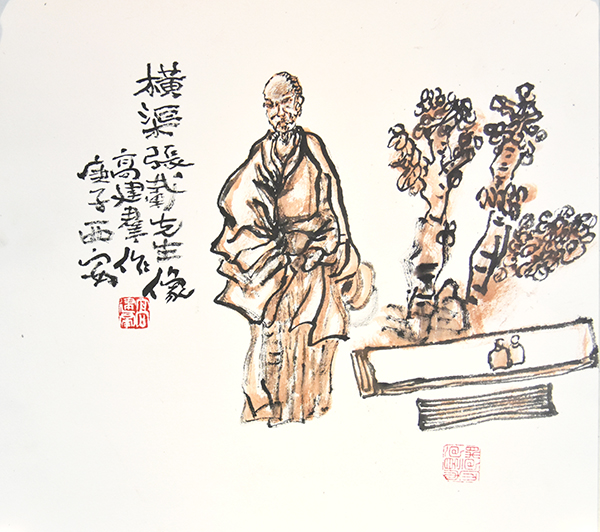 橫渠張載先生像
高建群作
庚子西安